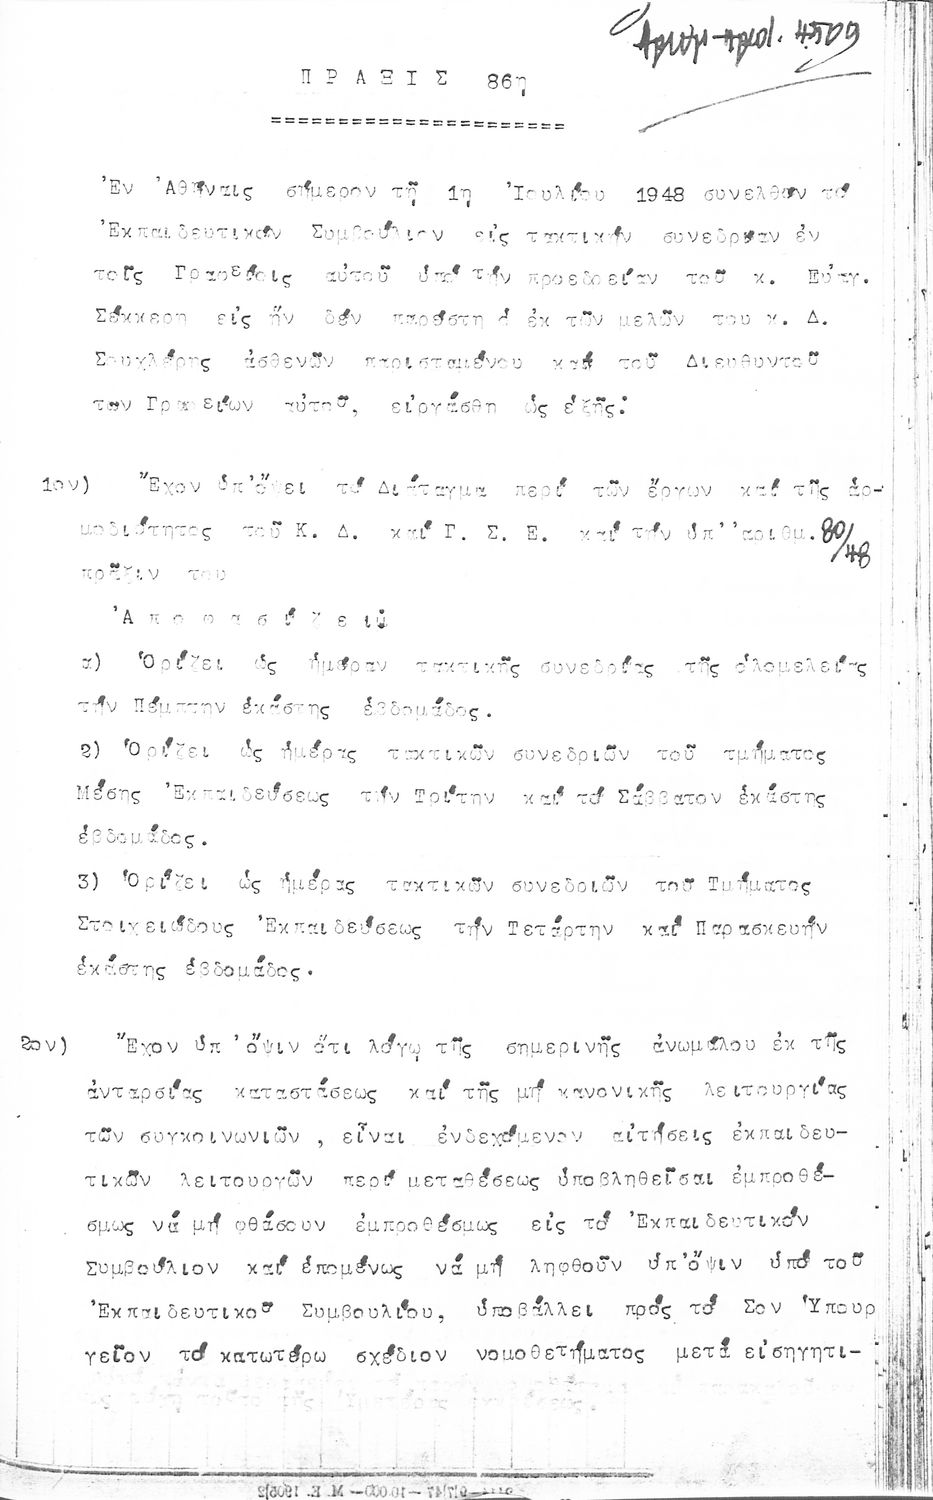 Ἀριθμ-πρωτ. 4509
ΠΡΑΞΙΣ 86η
======================
Ἐν Ἀθήναις σήμερον τῇ 1η Ἰουλίου 1948 συνελθόν τό
Ἐκπαιδευτικόν Συμβούλιον εἰς τακτικήν συνεδρίαν ἐν
τοῖς Γραφείοις αὐτοῦ ὑπό τήν προεδρείαν τοῦ κ. Εὐαγ.
Σέκκερη εἰς ἥν δέν παρέστη ὁ ἐκ τῶν μελῶν του κ. Δ.
Σουχλέρης ἀσθενῶν παρισταμένου καί τοῦ Διευθυντοῦ
των Γραφείων αὐτοῦ, εἰργάσθη ὡς ἑξῆς:
1ον) Ἔχον ὑπ'ὄψει τό Διάταγμα περί τῶν ἔργων καί τῆς ἁρ-
μοδιότητος τοῦ Κ. Δ. καί Γ. Σ. Ε. καί τήν ὑπ''αριθμ. 80/48
πρᾶξιν του
Ἀ π ο φ α σ ί ζ ε ι
α) Ὁρίζει ὡς ἡμέραν τακτικῆς συνεδρίας τῆς ὁλομελείας
τήν Πέμπτην ἑκάστης ἑβδομάδος.
2) Ὁρίζει ὡς ἡμέρας τακτικῶν συνεδριῶν τοῦ τμήματος
Μέσης Ἐκπαιδεύσεως τήν Τρίτην καί τό Σάββατον ἑκάστης
ἑβδομάδος.
3) Ὁρίζει ὡς ἡμέρας τακτικῶν συνεδριῶν τοῦ Τμήματος
Στοιχειώδους Ἐκπαιδεύσεως τήν Τετάρτην καί Παρασκευήν
ἑκάστης ἑβδομάδος.
2ον) Ἔχον ὑπ'ὄψιν ὅτι λόγῳ τῆς σημερινῆς ἀνωμάλου ἐκ τῆς
ἀνταρσίας καταστάσεως καί τῆς μή κανονικῆς λειτουργίας
τῶν συγκοινωνιῶν, εἶναι ἐνδεχόμενον αἰτήσεις ἐκπαιδευ-
τικῶν λειτουργῶν περί μεταθέσεως ὑποβληθεῖσαι ἐμπροθέ-
σμως νά μή φθάσουν ἐμπροθέσμως εἰς τό Ἐκπαιδευτικόν
Συμβούλιον καί ἑπομένως νά μή ληφθοῦν ὑπ'ὄψιν ὑπό τοῦ
Ἐκπαιδευτικοῦ Συμβουλίου, ὑποβάλλει πρός τό Σον Ὑπουρ
γεῖον τό κατωτέρω σχέδιον νομοθετήματος μετά εἰσηγητι-